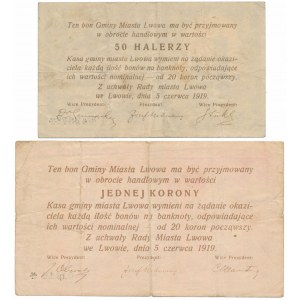 Ten bon Gminy Miasta Lwowa ma być przyjmowany
w obrocie handlowym w wartości
50 HALERZY
Kasa gminy miasta Lwowa wymieni na żądanie okazi-
ciela każdą ilość bonów na banknoty, odpowiadające
ich wartości nominalnej — od 20 koron począwszy.
Z uchwały Rady miasta Lwowa
we Lwowie, dnia 5 czerwca 1919.
Wice Prezydent: Prezydent: Wice Prezydent:
Ten bon Gminy Miasta Lwowa ma być przyjmowany
w obrocie handlowym w wartości
JEDNEJ KORONY
Kasa gminy miasta Lwowa wymieni na żądanie okazi-
ciela każdą ilość bonów na banknoty, odpowiadające
ich wartości nominalnej — od 20 koron począwszy.
Z uchwały Rady Miasta Lwowa
we Lwowie, dnia 5 czerwca 1919.
Wice Prezydent: Prezydent: Wice Prezydent: